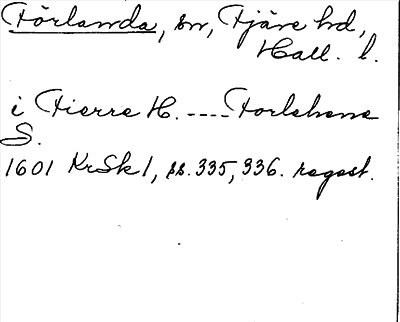 Förlanda, sn, Fjäre hd,
Hall. l.
i Fierre H. ---- Forlehena
S.
1601 KrSk 1, ss. 335, 336. regest.